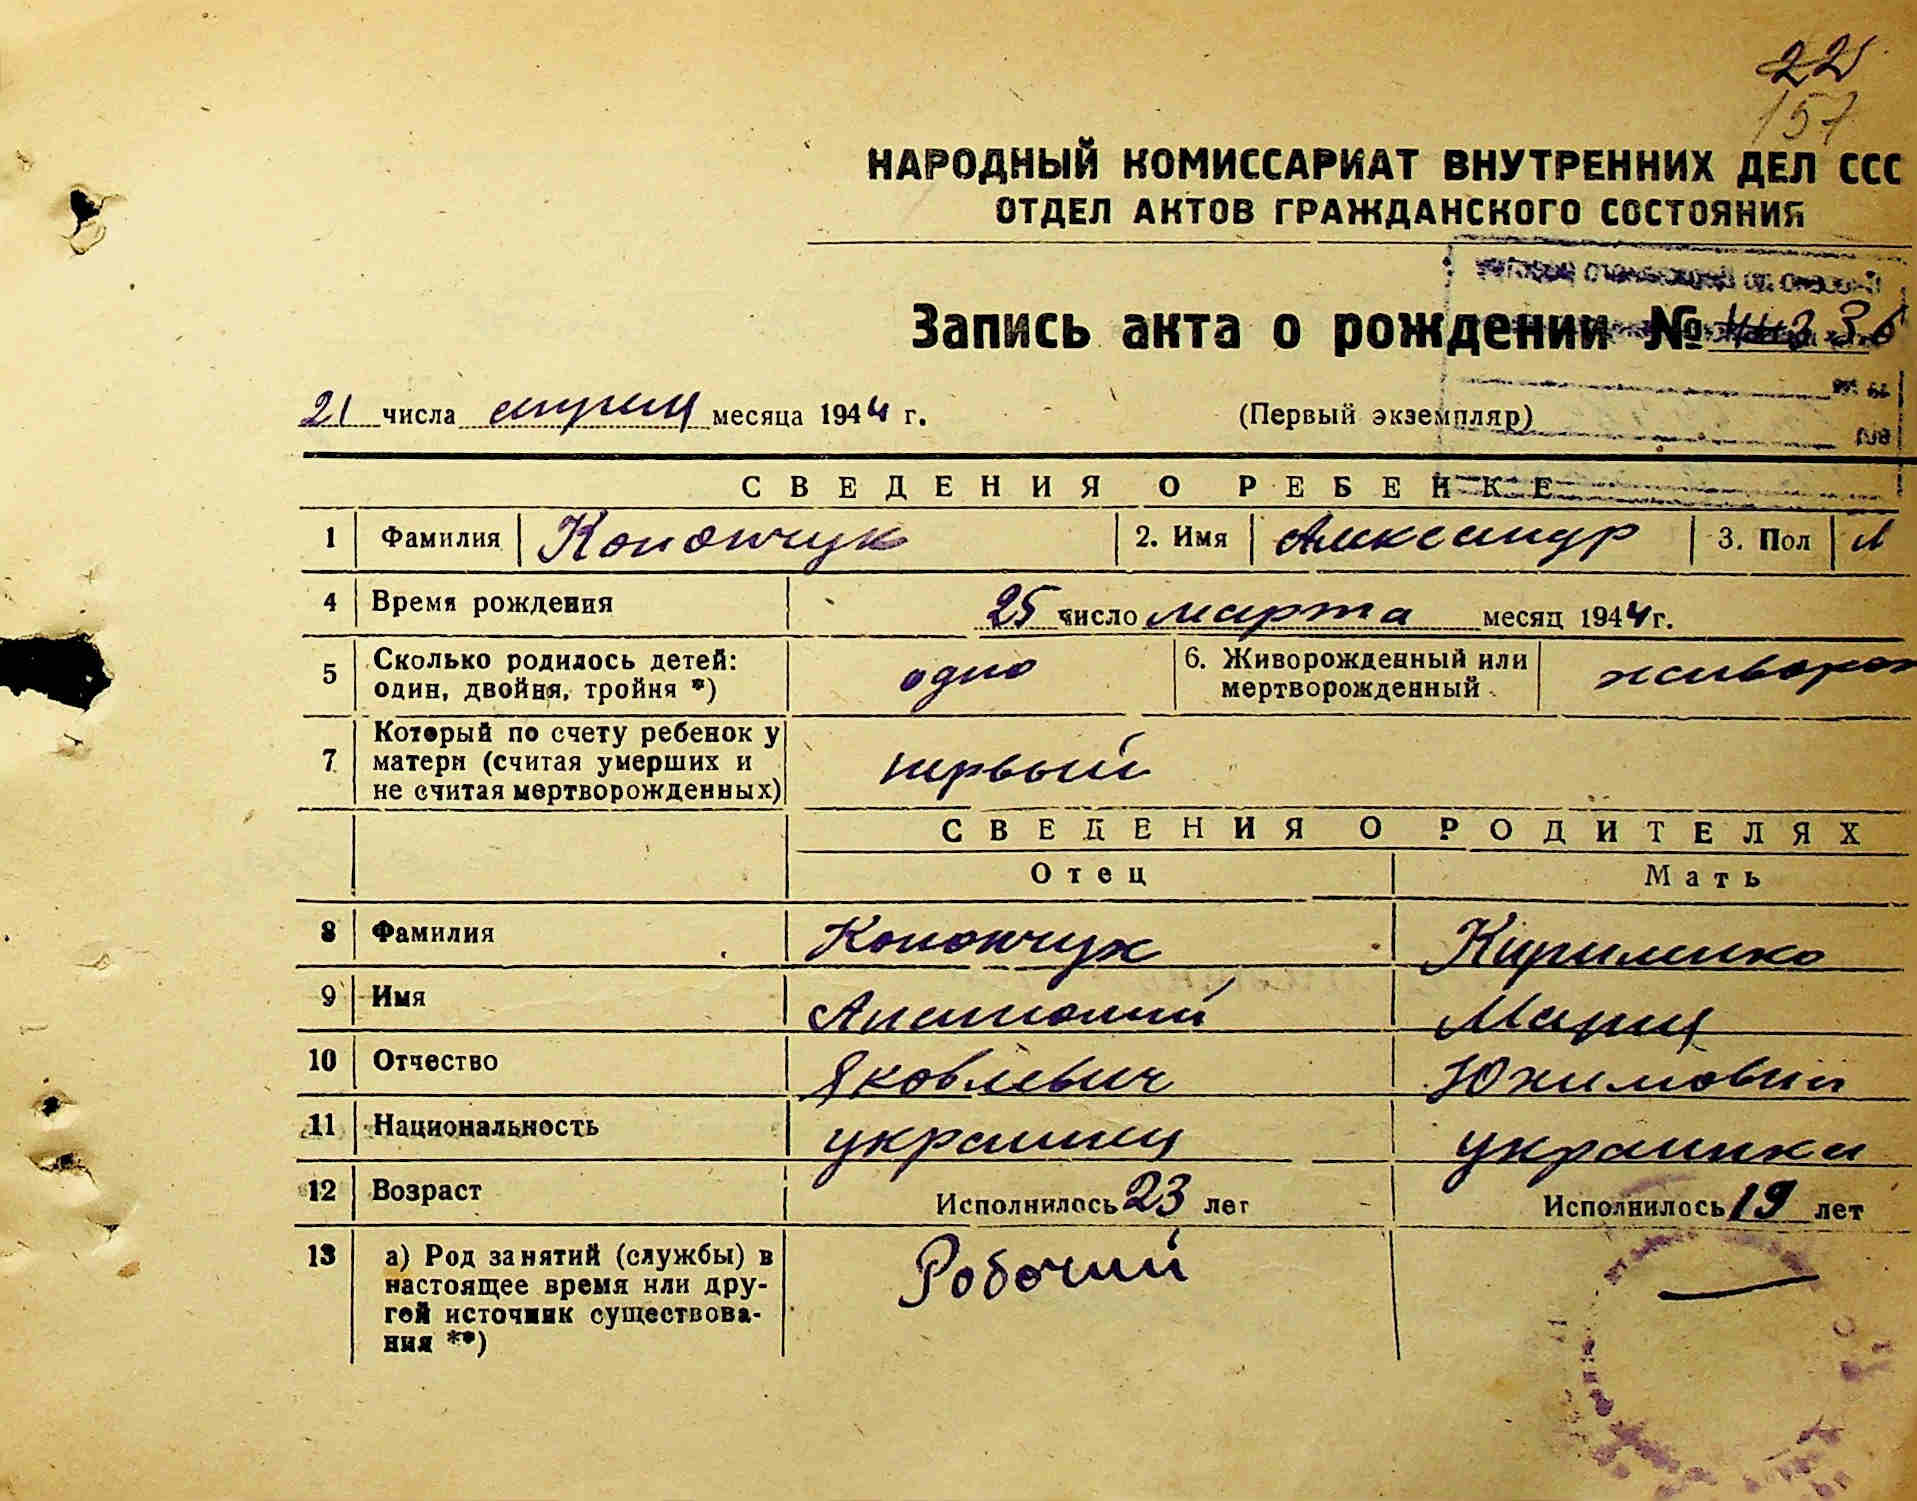 22
157
НАРОДНЫЙ КОМИССАРИАТ ВНУТРЕННИХ ДЕЛ ССС
ОТДЕЛ АКТОВ ГРАЖДАНСКОГО СОСТОЯНИЯ
Запись акта о рождении №
21 числа апреля месяца 1944 г. (Первый экземпляр)
СВЕДЕНИЯ О РЕБЕНКЕ
1 Фамилия Конончук 2. Имя Александр 3. Пол М
4 Время рождения 25 число марта месяц 1944 г.
5 Сколько родилось детей: один, двойня, тройня *) одно 6. Живорожденный или мертворожденный живорож
7 Который по счету ребенок у матери (считая умерших и не считая мертворожденных) первый
СВЕДЕНИЯ О РОДИТЕЛЯХ
Отец Мать
8 Фамилия Конончук Кириленко
9 Имя Анатолий Мария
10 Отчество Яковлевич Юхимовна
11 Национальность украинец украинка
12 Возраст Исполнилось 23 лет Исполнилось 19 лет
13 а) Род занятий (службы) в Робочий
настоящее время или дру-
гой источник существова-
ния **)